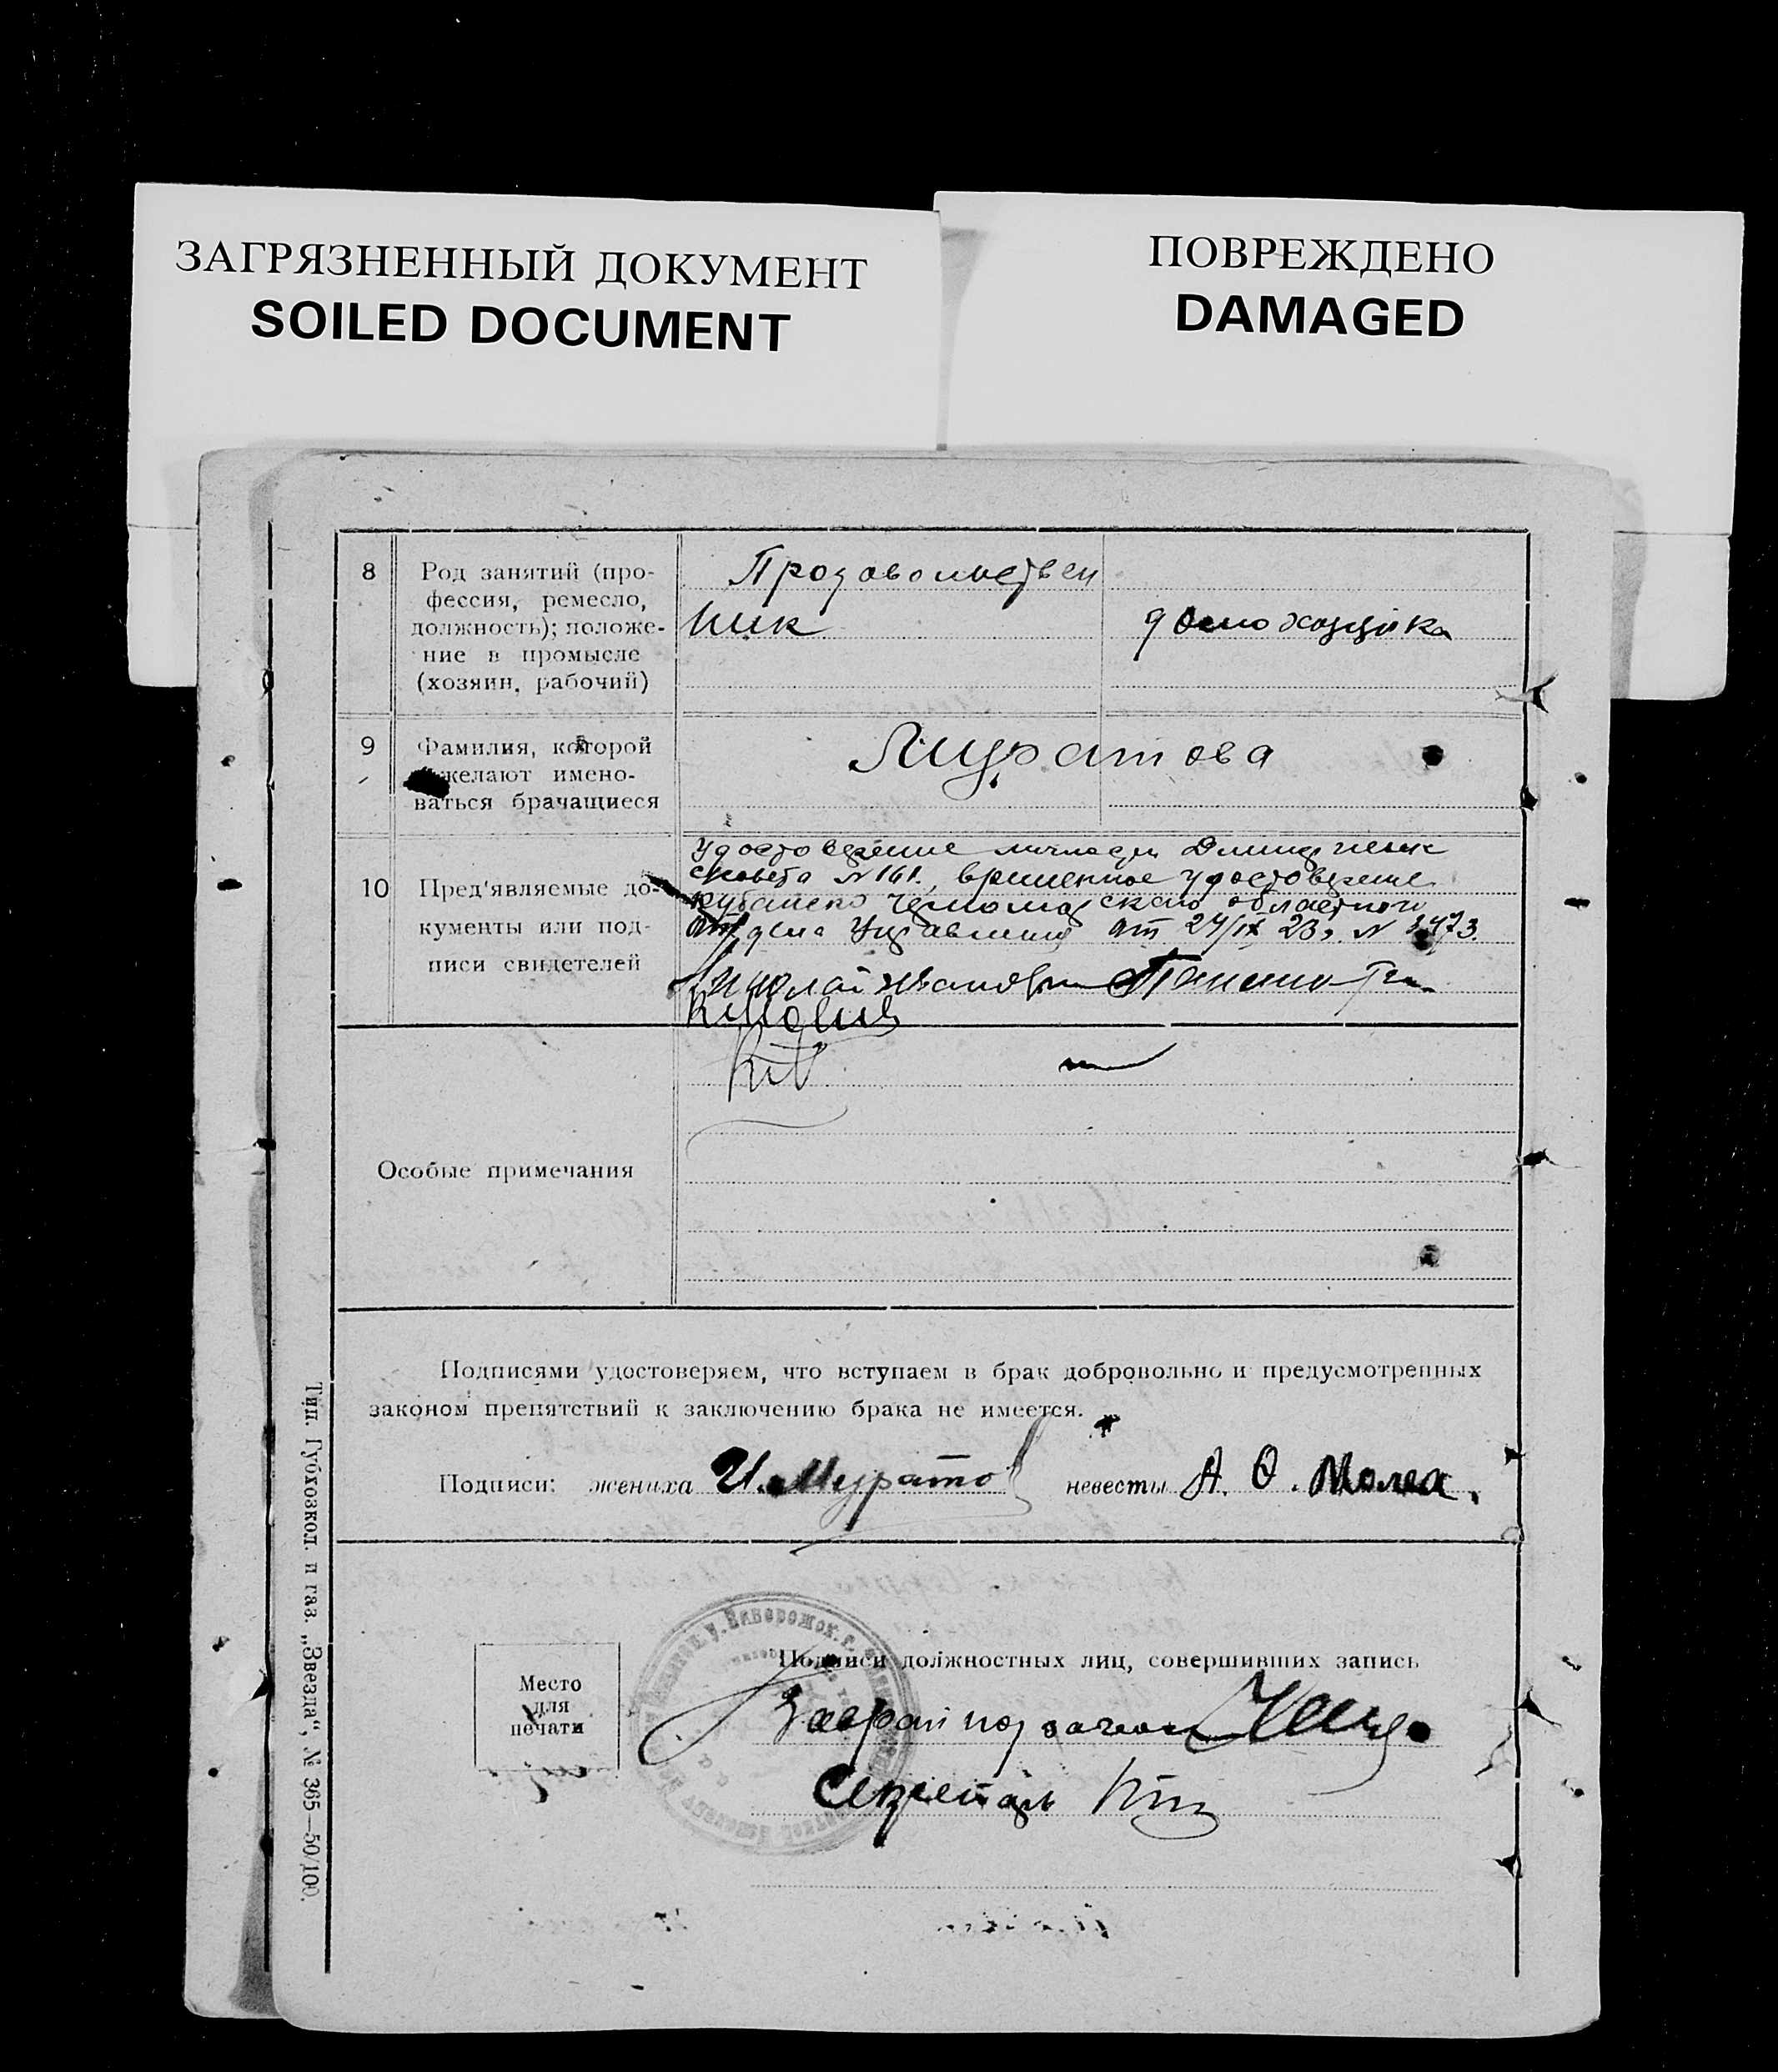 ЗАГРЯЗНЕННЫЙ ДОКУМЕНТ
SOILED DOCUMENT
ПОВРЕЖДЕНО
DAMAGED
8
Род занятий (про-
фессия, ремесло,
должность); положе-
ние в промысле
(хозяин, рабочий)
Продовольствен
ник
домохозяйка
9
Фамилия, которой
желают имено-
ваться брачащиеся
Муратова
10
Пред'являемые до-
кументы или под-
писи свидетелей
удостоверение личности
совета № 161., временное удостоверение
Кубанско Черноморского областного
отдела Управления от 24/IX 23 г. № 3473.
Николай
Особые примечания
Подписями удостоверяем, что вступаем в брак добровольно и предусмотренных
законом препятствий к заключению брака не имеется.
Подписи: жениха И. Муратов невесты А. О. Молка.
Место
для
печати
Подписи должностных лиц, совершивших запись
Секретарь
Тип. Губхозкол. и газ. „Звезда“, № 365—50/100.